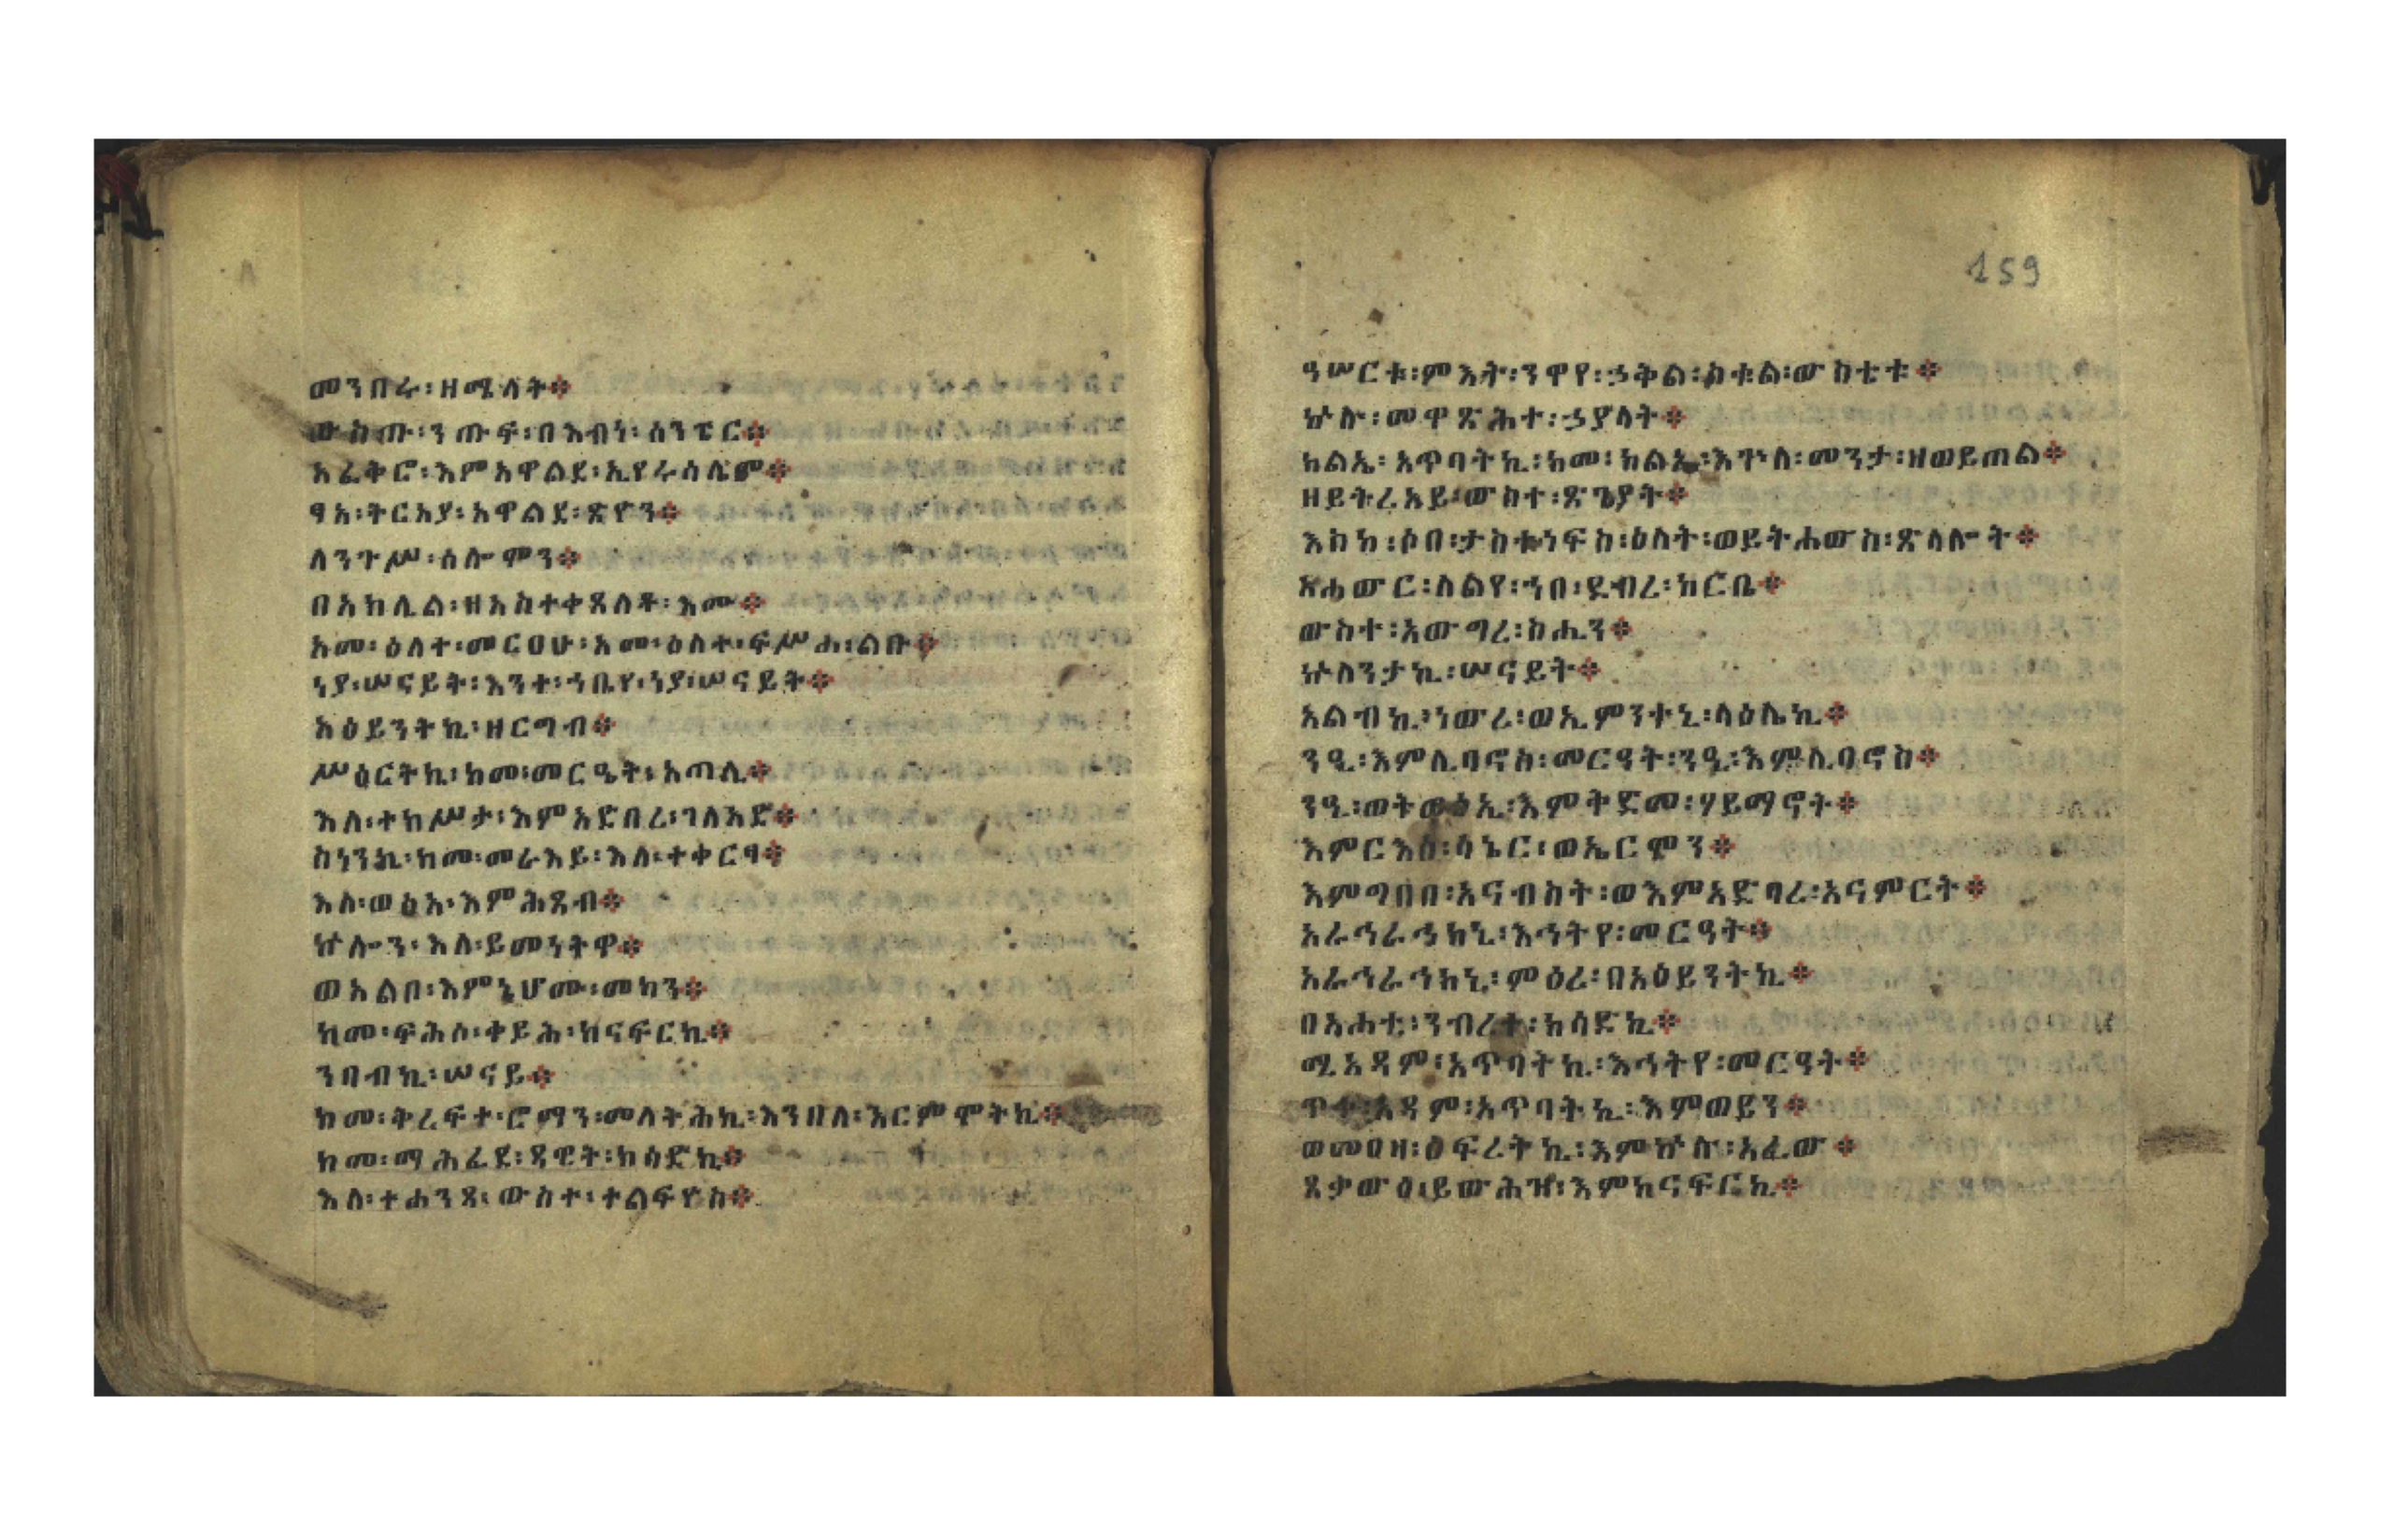 መንበራ፡ዘሜላት፨
ውስጡ፡ንጡፍ፡በእብነ፡ሰንፔር፨
አፈቅሮ፡እምአዋልደ፡ኢየሩሳሌም፨
ፃአ፡ትርአያ፡አዋልደ፡ጽዮን፨
ለንጉሥ፡ሰሎሞን፨
በአክሊል፡ዘአስተቀጸለቶ፡እሙ፨
አመ፡ዕለተ፡መርዐሁ፡አመ፡ዕለተ፡ፍሥሓ፡ልቡ፨
ነያ፡ሠናይት፡እንተ፡ኀቤየ፡ነያ፡ሠናይት፨
አዕይንትኪ፡ዘርግብ፨
ሥዕርትኪ፡ከመ፡መርዔት፡አጣሊ፨
እለ፡ተከሥታ፡እምአድበረ፡ገለአድ፨
ስነንኪ፡ከመ፡መራእይ፡እለ፡ተቀርፃ፨
እለ፡ወፅአ፡እምሕፃብ፨
ኵሎን፡እለ፡ይመነትዋ፨
ወአልቦ፡እምኔሆሙ፡መካን፨
ከመ፡ፍሕሶ፡ቀይሕ፡ከናፍርኪ፨
ንባብኪ፡ሠናይ፨
ከመ፡ቅረፍተ፡ሮማን፡መላትሕኪ፡እንበለ፡አርምሞትኪ፨
ከመ፡ማሕፈደ፡ዳዊት፡ክሳድኪ፨
እለ፡ተሐንጸ፡ውስተ፡ተልፍዮስ፨
159
ዓሠርቱ፡ምእት፡ንዋየ፡ኃቅል፡ስቁል፡ውስቴቱ፨
ኵሉ፡መዋጽሕተ፡ኃያላት፨
ክልኤ፡አጥባትኪ፡ከመ፡ክልኤ፡እጐለ፡መንታ፡ዘወይጠል፨
ዘይትረአይ፡ውስተ፡ጽጌያት፨
እስከ፡ሶበ፡ታስቱነፍስ፡ዕለት፡ወይትሐወስ፡ጽላሎት፨
አሐውር፡ለልየ፡ኀበ፡ደብረ፡ከርቤ፨
ውስተ፡አውግረ፡ስሒን፨
ኵለንታኪ፡ሠናይት፨
አልብኪ፡ነውረ፡ወኢምንተኒ፡ላዕሌኪ፨
ንዒ፡እምሊባኖስ፡መርዓት፡ንዒ፡እምሊባኖስ፨
ንዒ፡ወትወፅኢ፡እምቅድመ፡ሃይማኖት፨
እምርእሰ፡ሳኔር፡ወኤርሞን፨
እምግበበ፡አናብስት፡ወእምአድባረ፡አናምርት፨
አራኅራኅክኒ፡እኅትየ፡መርዓት፨
አራኅራኅክኒ፡ምዕረ፡በአዕይንትኪ፨
በአሐቲ፡ንብረተ፡ክሳድኪ፨
ሚአዳም፡አጥባትኪ፡እኅትየ፡መርዓት፨
ጥቀ፡አዳም፡አጥባትኪ፡እምወይን፨
ወመዐዛ፡ዕፍረትኪ፡እምኵሉ፡አፈው፨
ጸቃውዕ፡ይውሕዝ፡እምከናፍርኪ፨